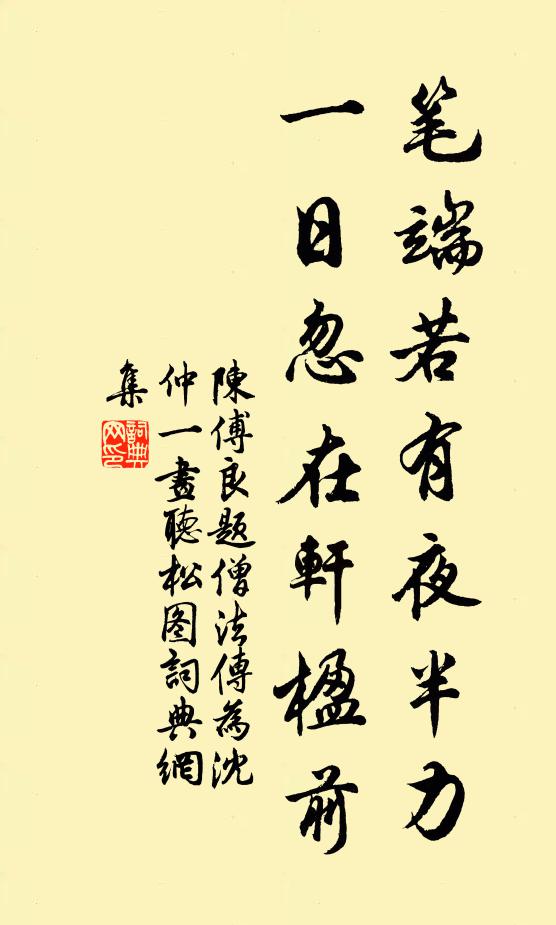 笔端若有夜半力
一日忽在軒楹前
陳傅良题僧法傳為沈
仲一畫聽松图詞典網
集
詞典网印